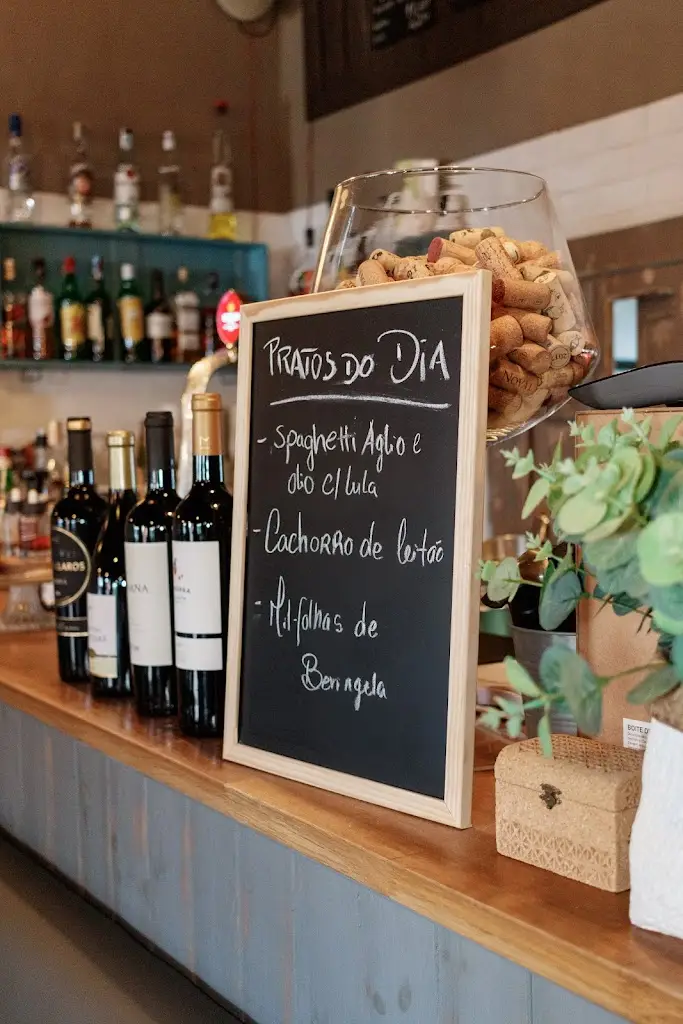 PRATOS DO DIA
- Spaghetti Aglio e
olio c/ lula
- Cachorro de leitão
- Mil-folhas de
Beringela
CLAROS
ANA
BOITE D